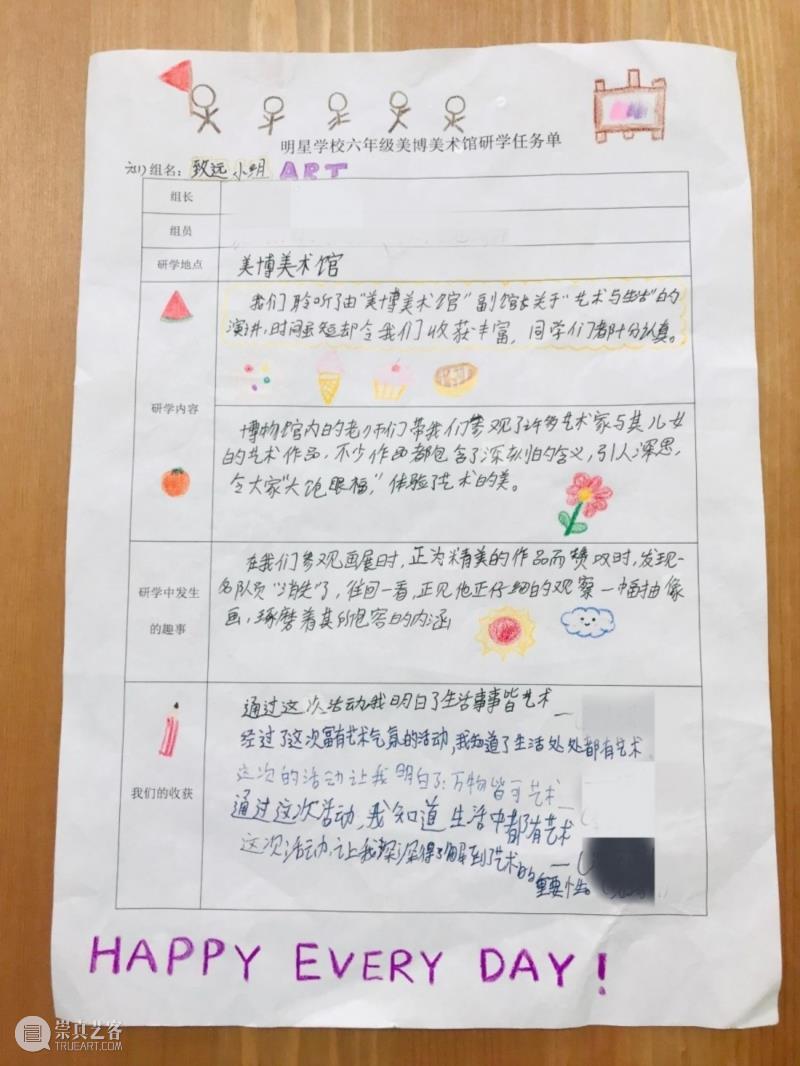 明星学校六年级美博美术馆研学任务单
六(1)组名：致远小组 ART
组长
组员
研学地点 美博美术馆
我们聆听了由“美博美术馆”副馆长关于“艺术与生活”的
演讲，时间虽短却令我们收获丰富，同学们都十分认真。
研学内容
博物馆内的老师们带我们参观了许多艺术家与其儿女
的艺术作品，不少作画都包含了深刻的含义，引人深思，
令大家“大饱眼福，”体验了艺术的美。
研学中发生
的趣事
在我们参观画展时，正为精美的作品而赞叹时，发现一
名队员“消失”了，往回一看，正见他正仔细的观察一幅抽像
画，琢磨着其所包容的内涵
我们的收获
通过这次活动我明白了生活事事皆艺术
经过了这次富有艺术气氛的活动，我知道了生活处处都有艺术
这次的活动让我明白了：万物皆可艺术
通过这次活动，我知道生活中都有艺术
这次活动，让我深深得了解到了艺术的重要性。
HAPPY EVERY DAY!
崇真艺客
TRUEART.COM